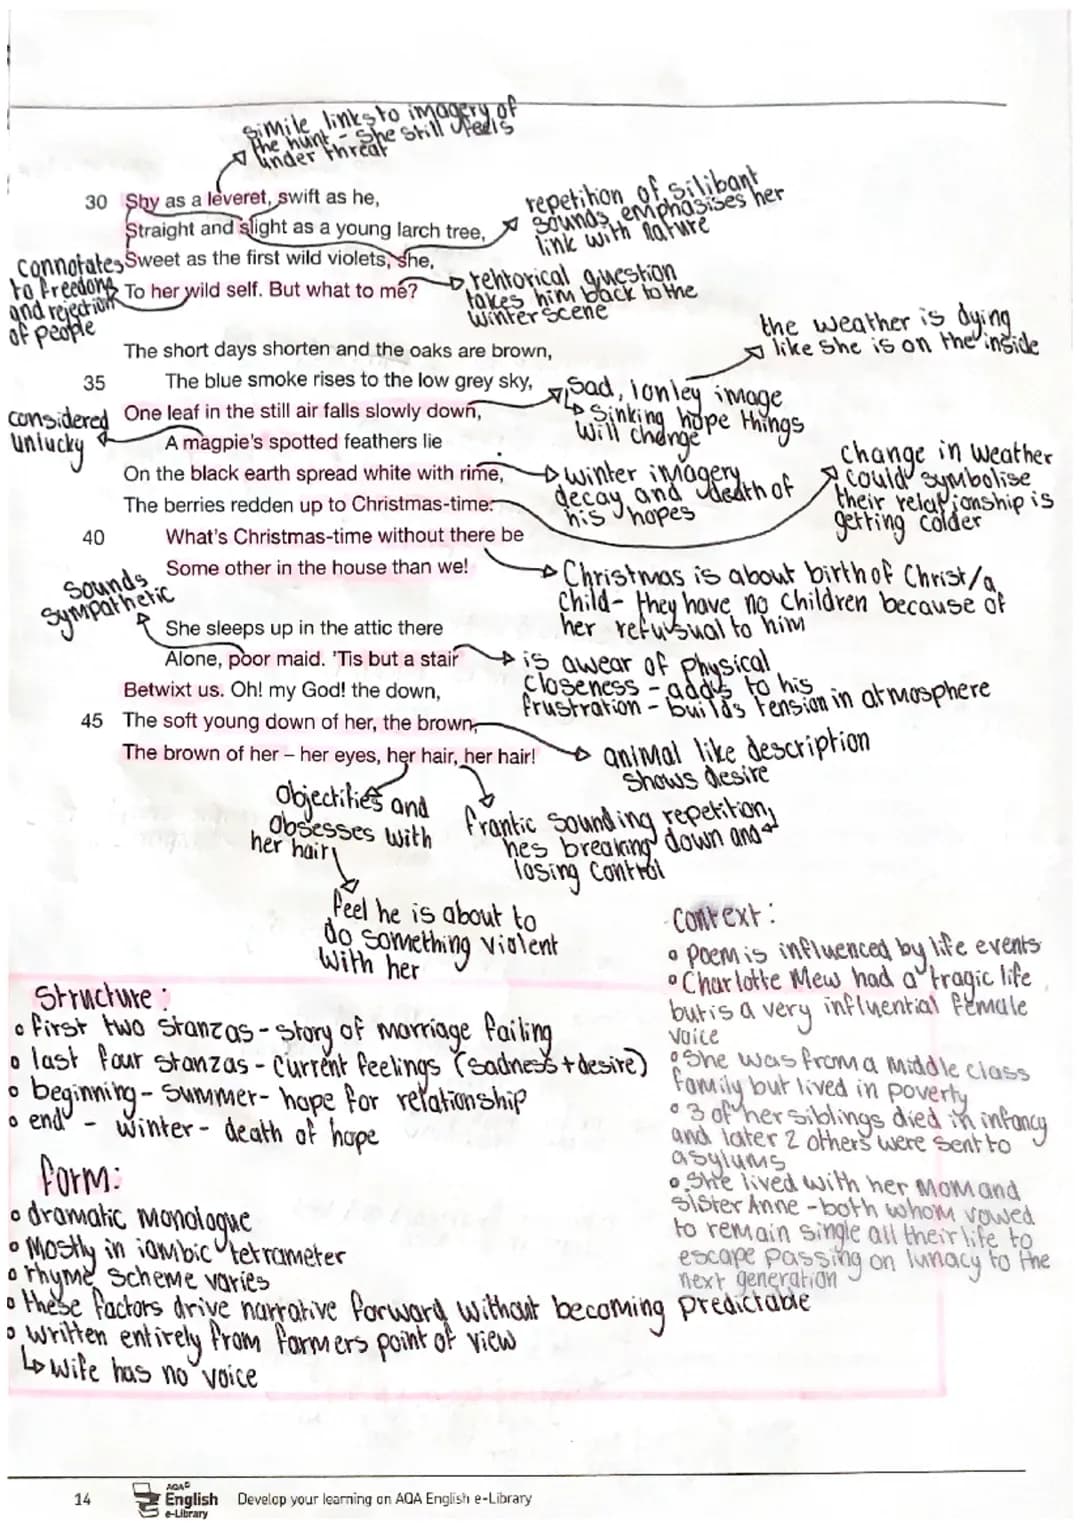 simile links to imagery of
the hunt - she still feels
under threat
30 Shy as a leveret, swift as he,
Straight and slight as a young larch tree,
Sweet as the first wild violets, she,
To her wild self. But what to me?
repetition of silibant
sounds emphasises her
link with nature
connotates
to freedom
and rejection
of people
rehtorical question
takes him back to the
winter scene
The short days shorten and the oaks are brown,
35 The blue smoke rises to the low grey sky,
One leaf in the still air falls slowly down,
A magpie's spotted feathers lie
On the black earth spread white with rime,
The berries redden up to Christmas-time.
40 What's Christmas-time without there be
Some other in the house than we!
the weather is dying
like she is on the inside
Sad, lonley image
Sinking hope things
will change
considered
unlucky
winter imagery
decay and death of
his hopes
change in weather
could symbolise
their relationship is
getting colder
Christmas is about birth of Christ/a
child - they have no children because of
her refusual to him
Sounds
sympathetic
She sleeps up in the attic there
Alone, poor maid. 'Tis but a stair
Betwixt us. Oh! my God! the down,
45 The soft young down of her, the brown,
The brown of her – her eyes, her hair, her hair!
is awear of physical
closeness - adds to his
frustration - builds tension in atmosphere
animal like description
shows desire
Objectifies and
obsesses with
her hair
frantic sounding repetition,
hes breaking down and
losing control
feel he is about to
do something violent
with her
Context:
poem is influenced by life events
Charlotte Mew had a tragic life
but is a very influential female
voice
She was from a middle class
family but lived in poverty
3 of her siblings died in infancy
and later 2 others were sent to
asylums
She lived with her mom and
sister Anne - both whom vowed
to remain single all their life to
escape passing on lunacy to the
next generation
Structure:
first two stanzas - story of marriage failing
last four stanzas - current feelings (sadness + desire)
beginning - summer - hope for relationship
end - winter - death of hope
form:
dramatic monologue
Mostly in iambic tetrameter
rhyme scheme varies
these factors drive narrative forward without becoming predictable
written entirely from farmers point of view
↳ wife has no voice
14 AQA English e-Library Develop your learning on AQA English e-Library